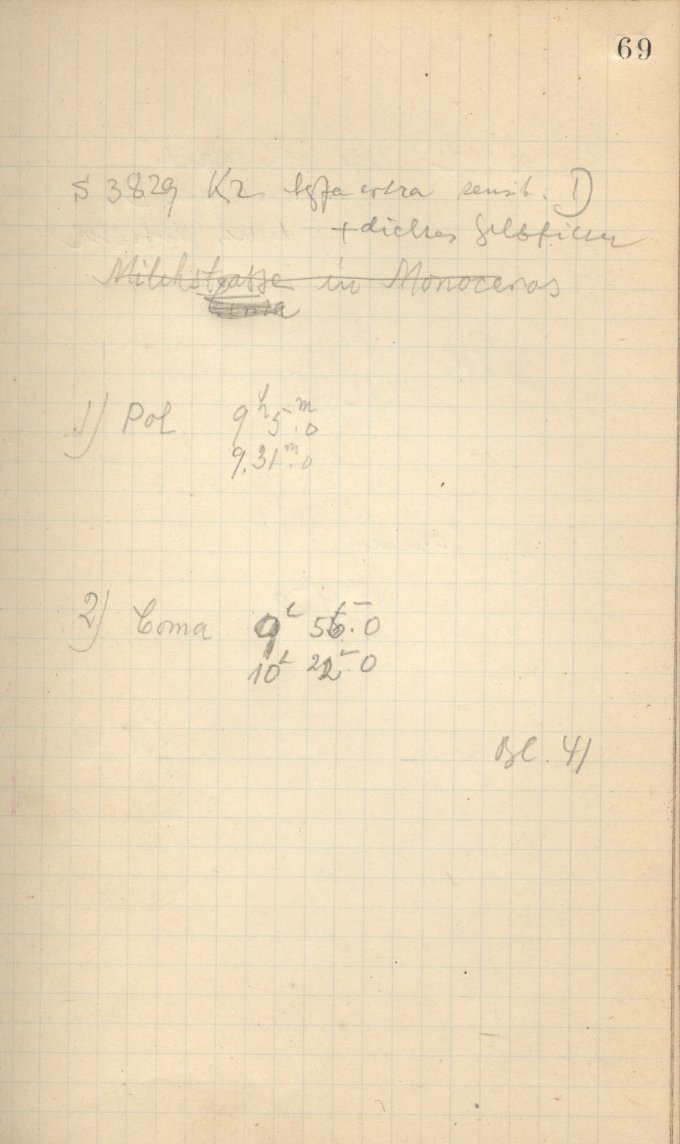 69
S 3829 K2 Agfa extra sensit. I)
+ dichtes Gelbfilter
Milchstrasse in Monoceros
1) Pol 9h 5m.0
9.31m.0
2) Coma 9h 56m.0
10h 22m.0
Bl. 41